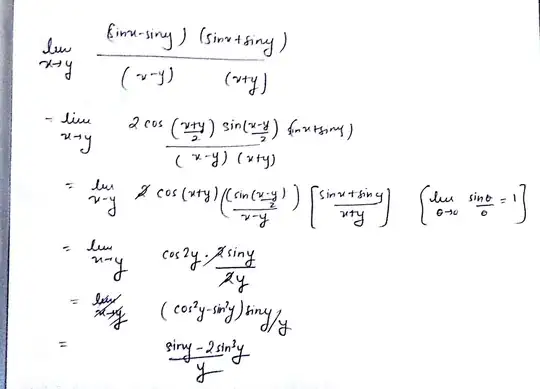 lim x→y (sinx-siny) (sinx+siny) / (x-y) (x+y)
= lim x→y 2 cos (x+y/2) sin(x-y/2) (sinx+siny) / (x-y) (x+y)
= lim x→y 2 cos (x+y) ((sin(x-y)/2)/x-y) [sinx+siny / x+y] [lim θ→0 sinθ/θ = 1]
= lim x→y cos2y . 2siny / 2y
= lim x→y (cos²y-sin²y) siny/y
= siny - 2sin³y / y